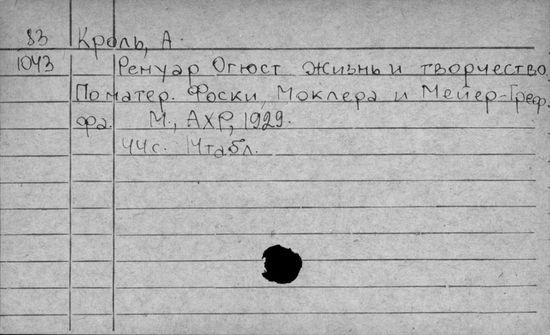 83 Кроль, А.
1043 Ренуар Огюст Жизнь и творчество.
По матер. Фоски, Моклера и Мейер-Греф-
фа. М., АХР, 1929.
44с. 14табл.